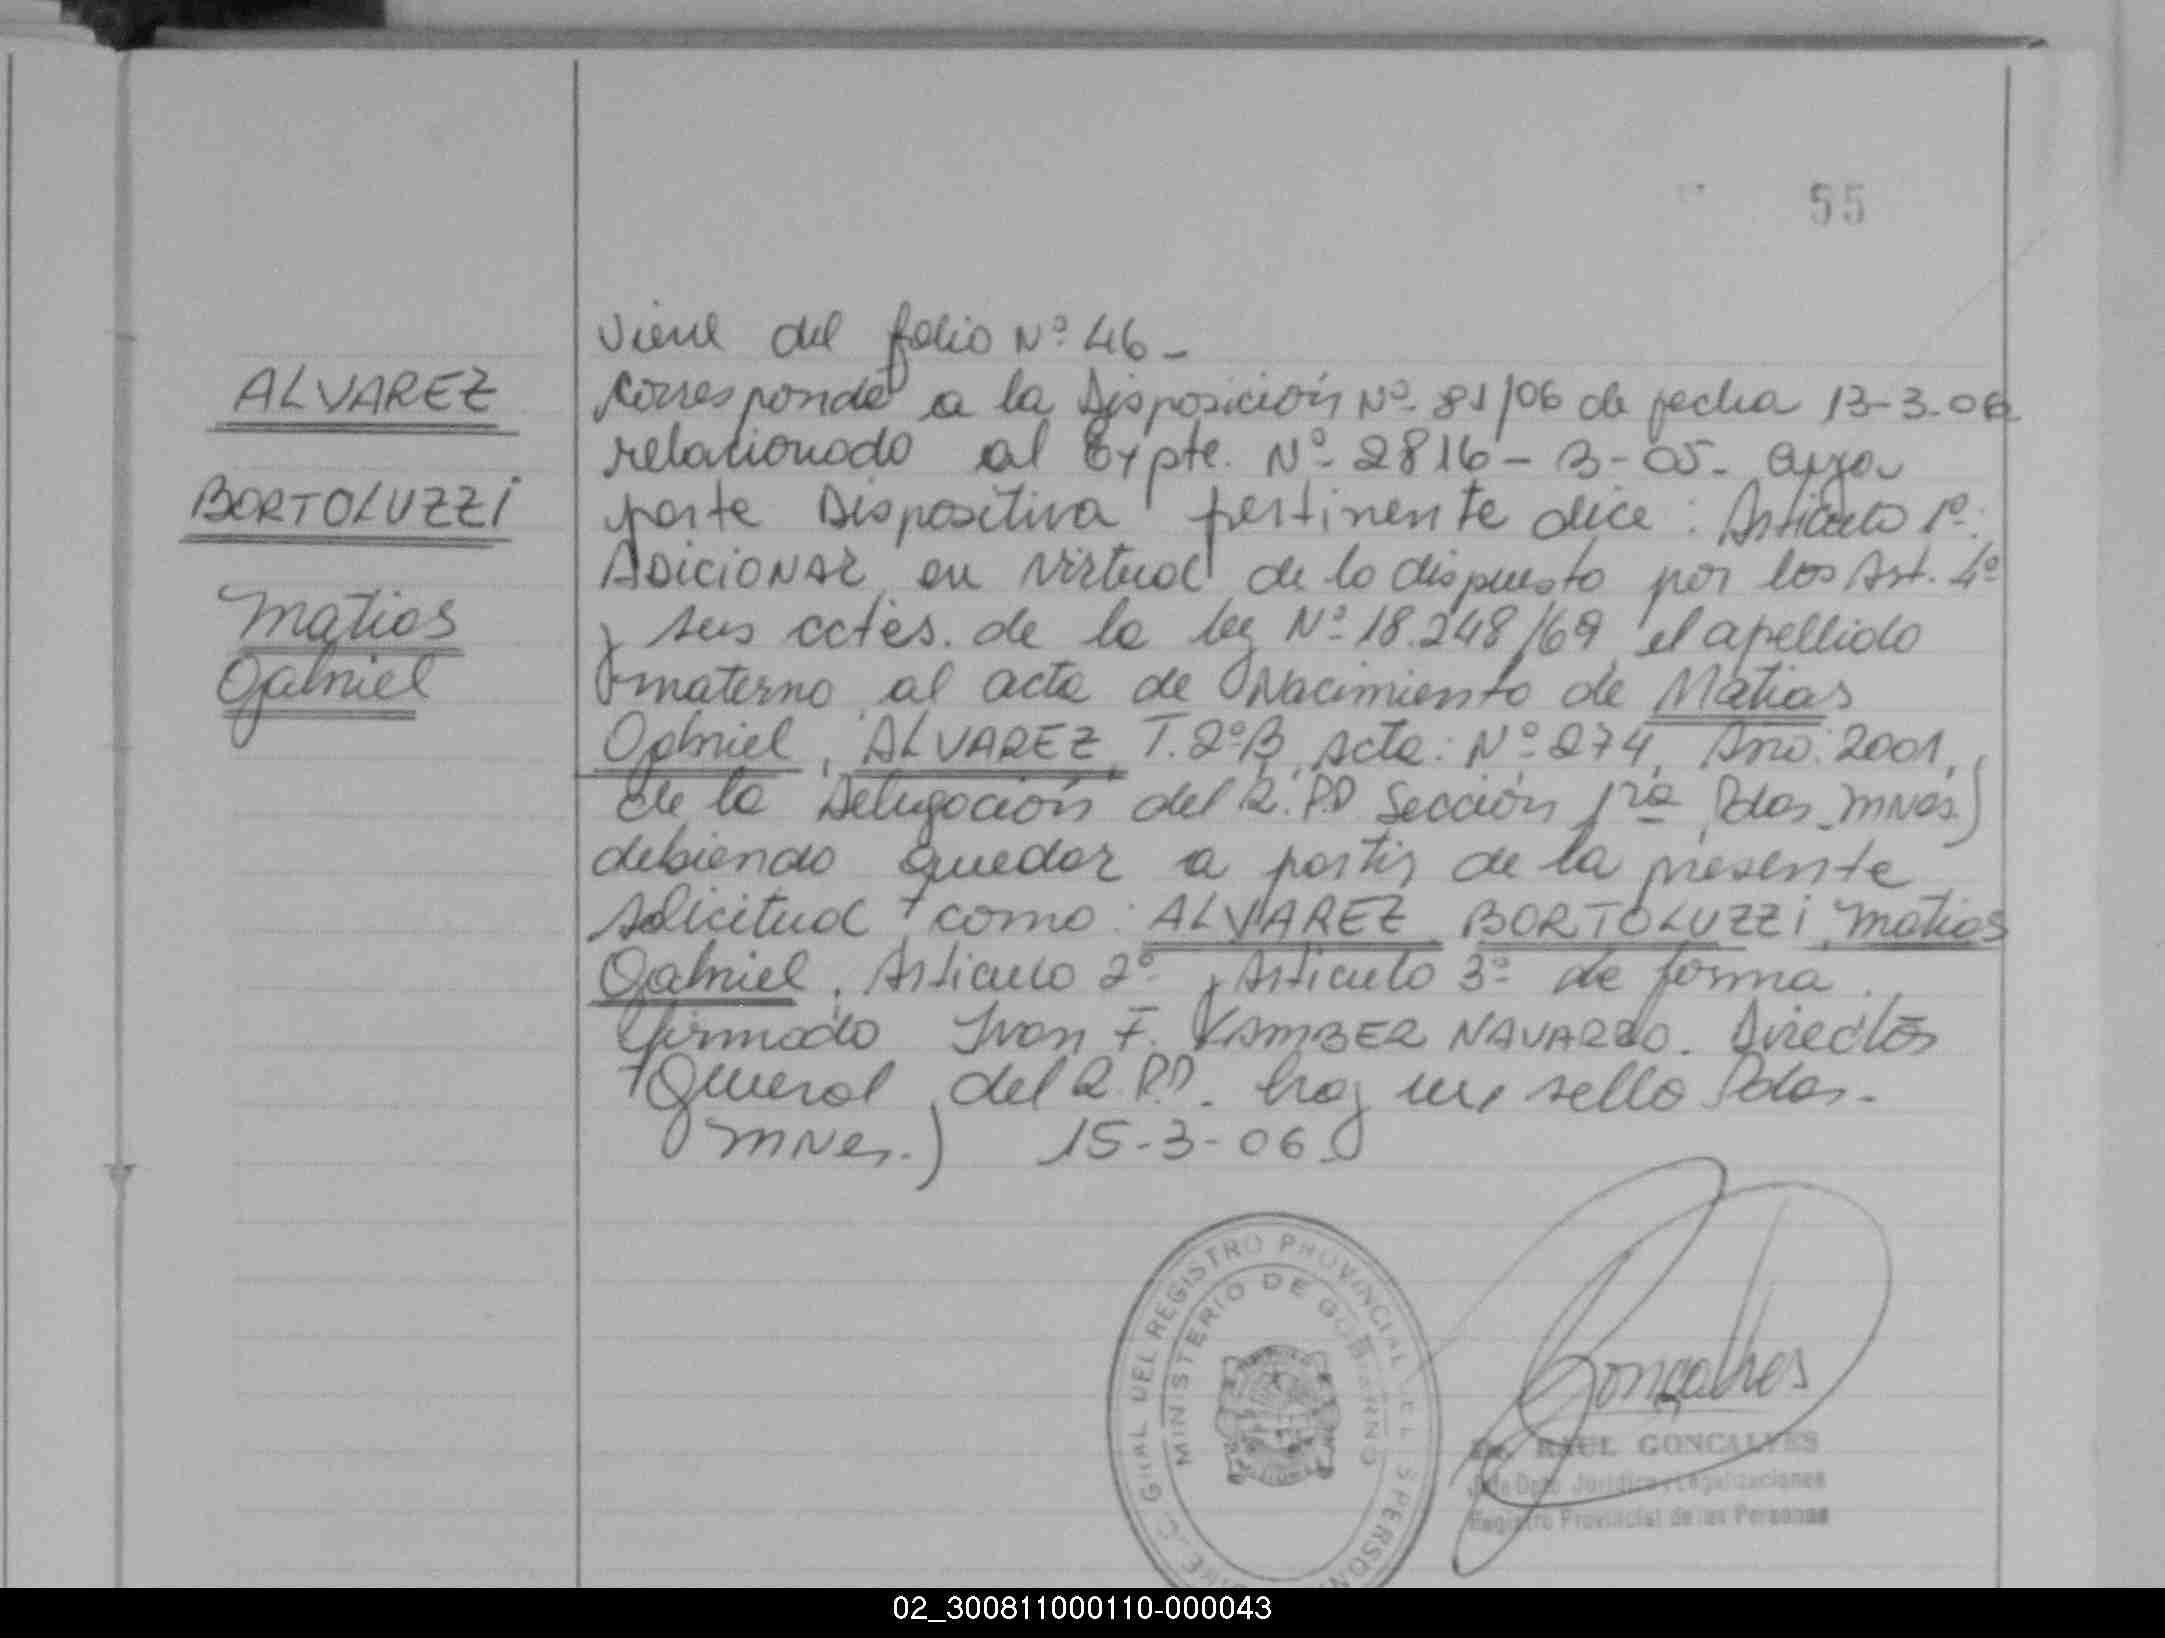 55
ALVAREZ
BORTOLUZZI
Matias
Gabriel
Viene del folio Nº 46 -
Corresponde a la Disposición Nº 81/06 de fecha 13-3-06
relacionado al Expte. Nº 2816 - B - 05 - cuya
parte Dispositiva pertinente dice: Articulo 1º:
ADICIONAR, en virtud de lo dispuesto por los Art. 4º
y sus cctes. de la ley Nº 18.248/69, el apellido
materno, al acta de Nacimiento de Matias
Gabriel, ALVAREZ, T. 2º B, Acta: Nº 274, Año: 2001,
de la Delegación del R.P.P Sección 1ra, Pdas, MNES)
debiendo quedar a partir de la presente
solicitud como: ALVAREZ BORTOLUZZI, Matias
Gabriel, Articulo 2º y Articulo 3º de forma.
firmado Ivan F. KAMBER NAVARRO. Director
General del R.P.P. hay un sello Pdas.
MNes.) 15-3-06
DIREC. GRAL DEL REGISTRO PROVINCIAL DE L S PERSON
MINISTERIO DE GOBIERNO
Goncalves
Dr. RAUL GONCALVES
Jefe Dpto Jurídico y Legalizaciones
Registro Provincial de las Personas
02_300811000110-000043